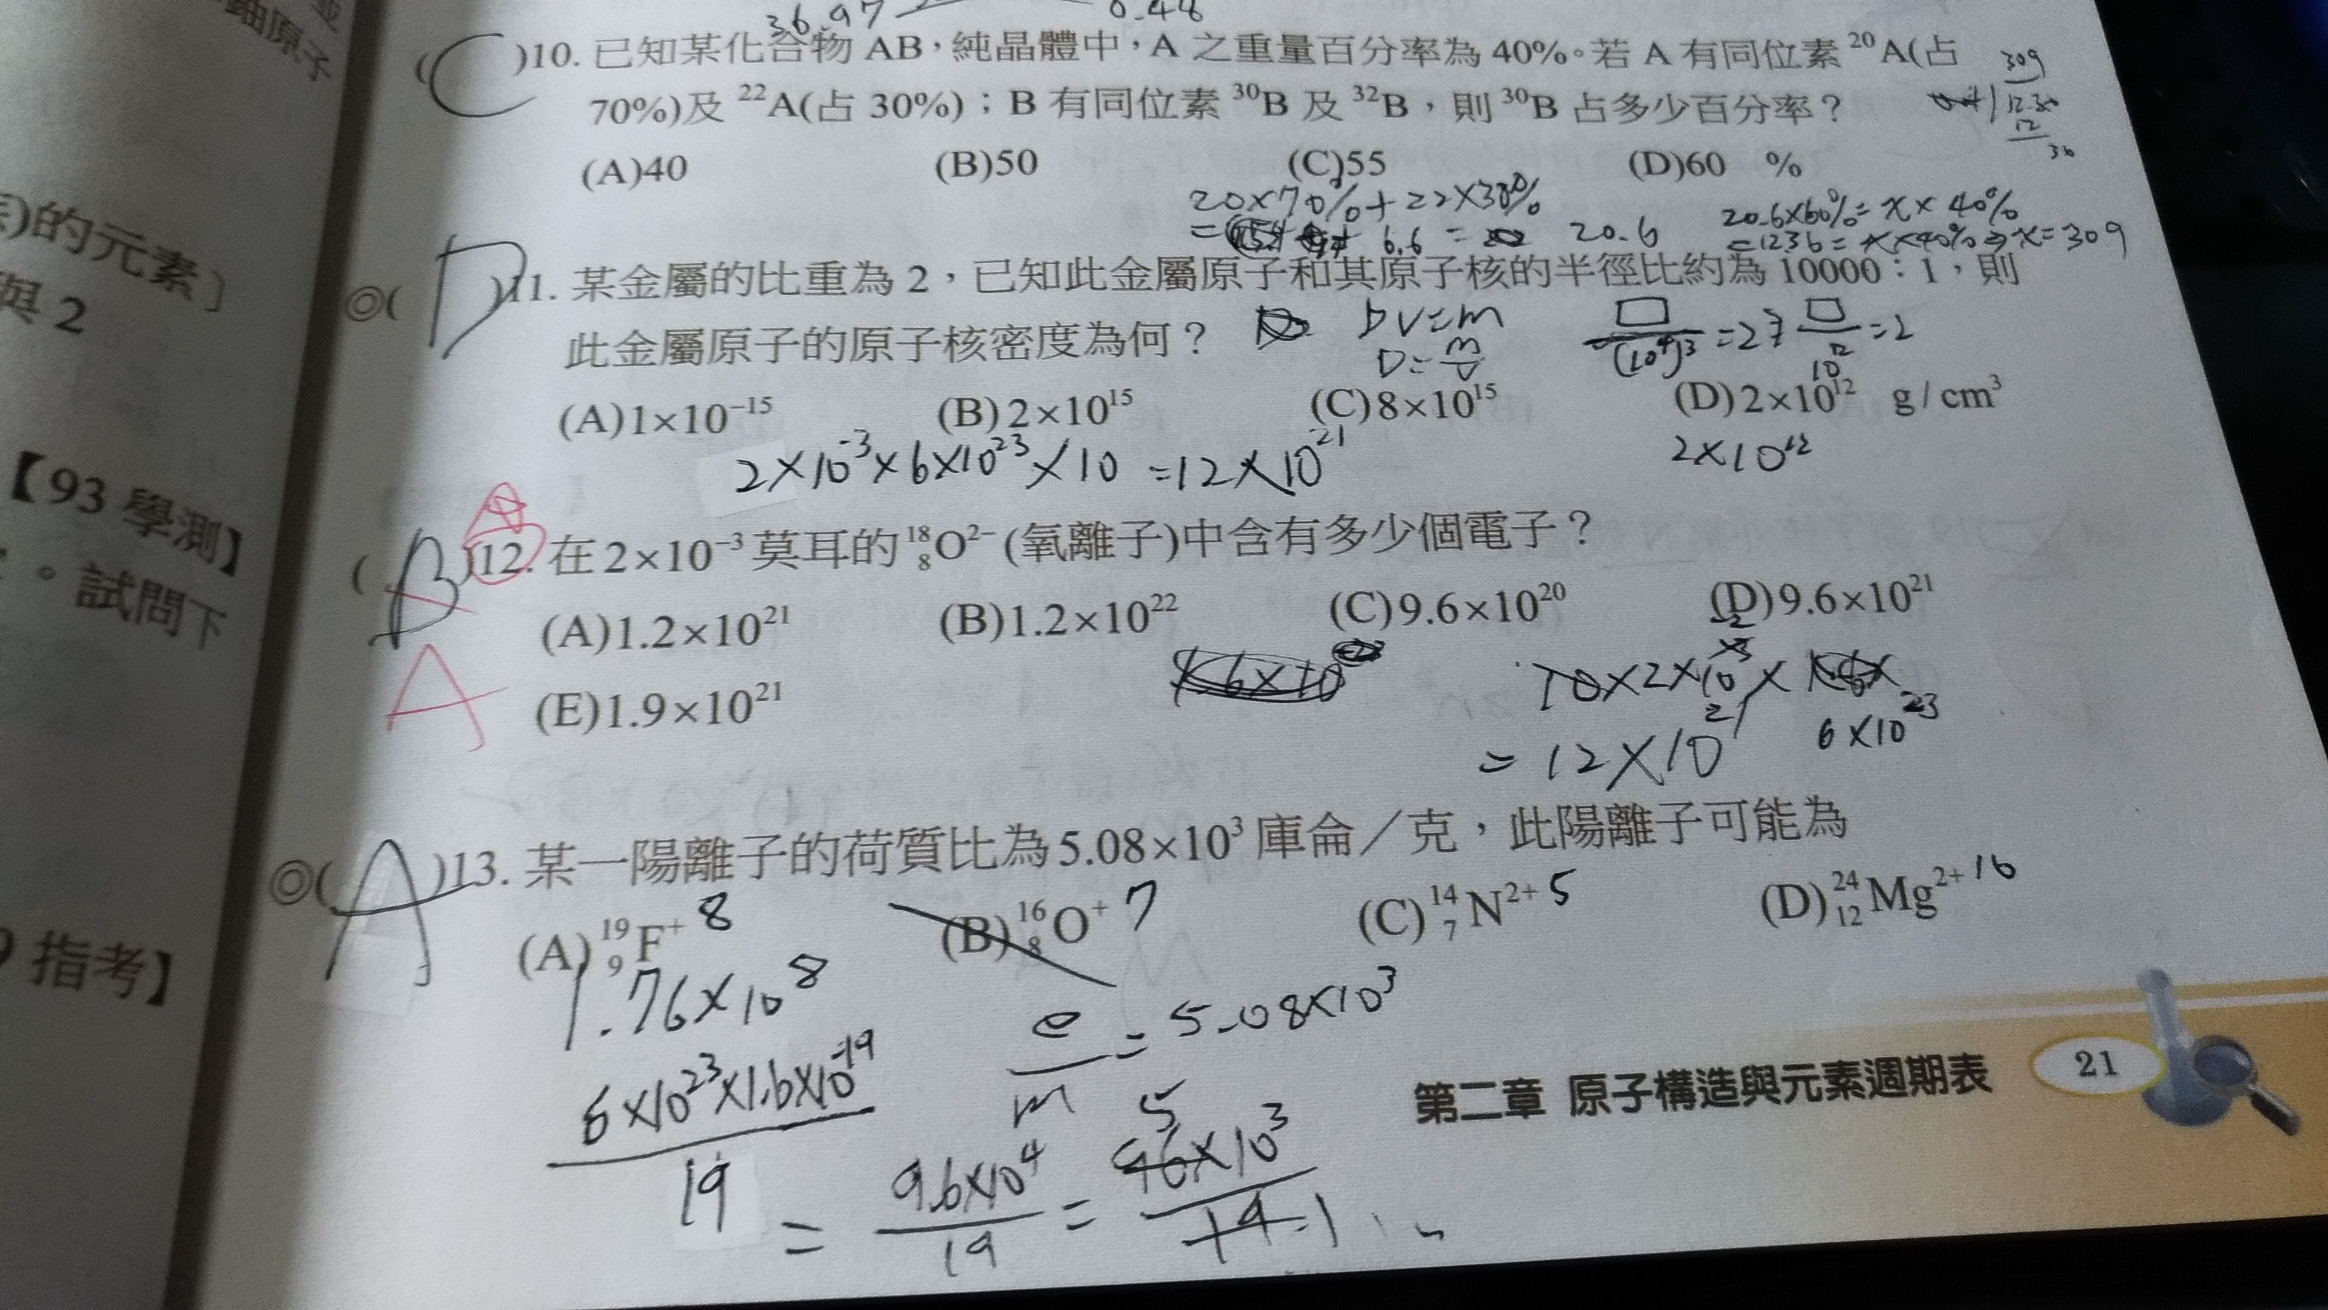 亞
鈾原子
36.97
0.48
(C)10. 已知某化合物 AB，純晶體中，A 之重量百分率為 40%。若 A 有同位素 ²⁰A(占
70%)及 ²²A(占 30%)；B 有同位素 ³⁰B 及 ³²B，則 ³⁰B 占多少百分率？
309
12.36
12
36
(A)40 (B)50 (C)55 (D)60 %
20×70%+22×30%
6.6 = 20.6
20.6×60%= x × 40%
=1236= x×40% ⇒ x=309
)的元素〕
與 2
◎(D)11. 某金屬的比重為 2，已知此金屬原子和其原子核的半徑比約為 10000：1，則
此金屬原子的原子核密度為何？
DV=m
D=m/V
□/(10⁴)³=2⇒□/10¹²=2
(A)1×10⁻¹⁵ (B)2×10¹⁵ (C)8×10¹⁵ (D)2×10¹² g/cm³
2×10⁻³×6×10²³×10 =12×10²¹
2×10¹²
【93 學測】
。試問下
(B)12. 在 2×10⁻³ 莫耳的 ¹⁸₈O²⁻ (氧離子)中含有多少個電子？
A
(A)1.2×10²¹ (B)1.2×10²² (C)9.6×10²⁰ (D)9.6×10²¹
(E)1.9×10²¹
10×2×10⁻³×
6×10²³
= 12×10²¹
◎(A)13. 某一陽離子的荷質比為 5.08×10³ 庫侖／克，此陽離子可能為
(A)¹⁹₉F⁺ 8 (B)¹⁶₈O⁺ 7 (C)¹⁴₇N²⁺ 5 (D)²⁴₁₂Mg²⁺ 10
指考】
1.76×10⁸
e/m = 5.08×10³
6×10²³×1.6×10⁻¹⁹
19
= 9.6×10⁴/19 = 96×10³/19
5
1
第二章 原子構造與元素週期表 21